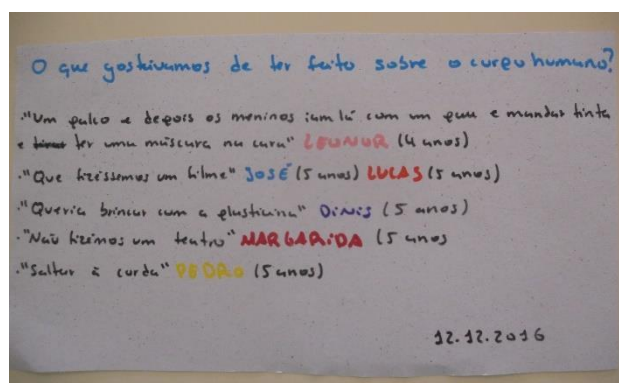 O que gostávamos de ter feito sobre o corpo humano?
."Um palco e depois os meninos iam lá com um pau e mandar tinta
e ter uma máscara na cara" LEONOR (4 anos)
."Que fizéssemos um filme" JOSÉ (5 anos) LUCAS (5 anos)
."Queria brincar com a plasticina" DiNiS (5 anos)
."Não fizemos um teatro" MARGARiDA (5 anos
."Saltar à corda" PEDRO (5 anos)
12.12.2016